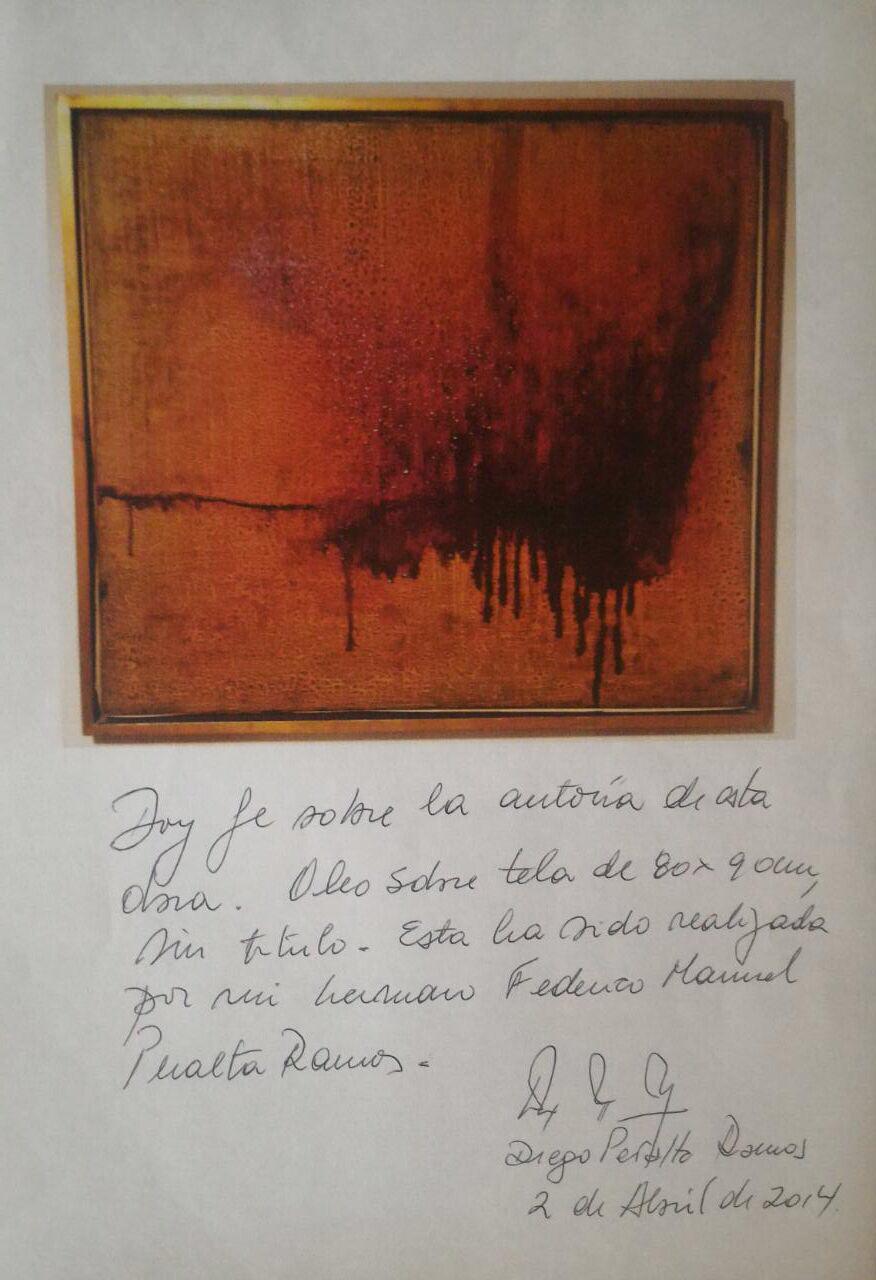 Doy fe sobre la autoría de esta
obra. Oleo sobre tela de 80x90cm,
sin titulo. Esta ha sido realizada
por mi hermano Federico Manuel
Peralta Ramos.
Diego Peralta Ramos
2 de Abril de 2014.